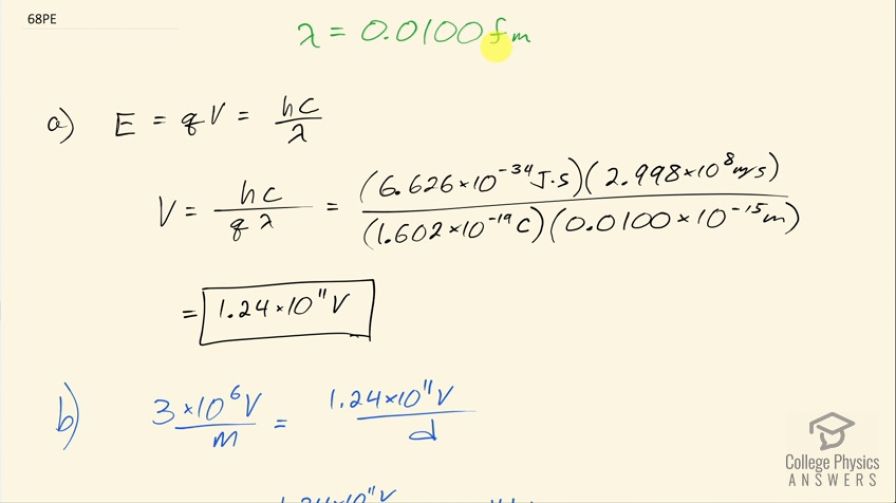 68PE
λ = 0.0100 fm
a) E = qV = hc/λ
V = hc/qλ = (6.626×10⁻³⁴ J·s)(2.998×10⁸ m/s)/(1.602×10⁻¹⁹ C)(0.0100×10⁻¹⁵ m)
= 1.24×10¹¹ V
b) 3×10⁶ V/m = 1.24×10¹¹ V/d
1.24×10¹¹ V
College Physics
ANSWERS